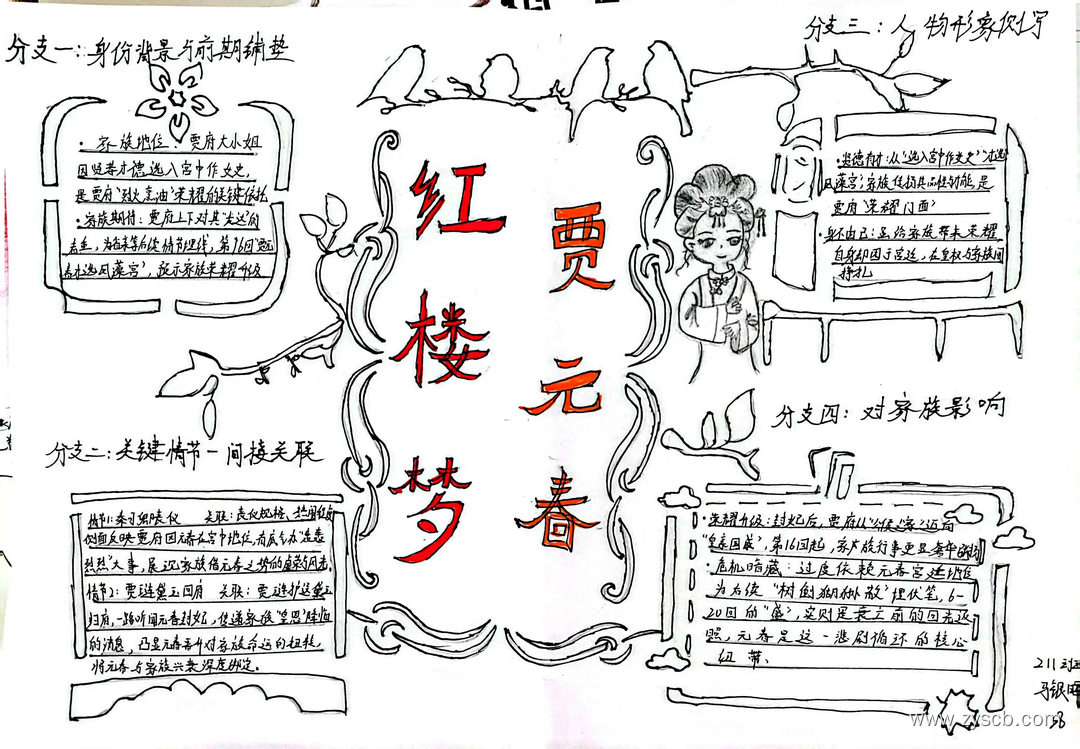 分支一：身份背景与前期铺垫
・家族地位：贾府大小姐
因贤孝才德选入宫中作女史，
是贾府"烈火烹油"荣耀的关键依托
・家族期待：贾府上下对其"发达"的
第16回"贾元
春才选凤藻宫"，
分支二：关键情节-间接关联
情节1：秦可卿丧仪 关联：丧仪规格、
侧面反映贾府因元春在宫中地位，有底气办"轰轰
烈烈"大事，展现家族借元春之势的虚荣与风光。
情节2：贾琏黛玉回府 关联：贾琏护送黛玉
归府，一路听闻元春封妃，传递家族"皇恩"降临
的消息，凸显元春晋升对家族命运的扭转，
将元春与家族兴衰深度绑定。
红楼梦
贾元春
分支三：人物形象侧写
・贤德有才：从"选入宫中作女史""才选
凤藻宫"家族
贾府"荣耀门面"
・身不由己：虽给家族带来荣耀，
自身却困于宫廷，在皇权与家族间
挣扎
分支四：对家族影响
・荣耀升级：封妃后，贾府从"公侯之家"迈向
"皇亲国戚"，第16回起，家族行事更显奢华
・危机暗藏：过度依赖元春宫廷地位
为后续"树倒猢狲散"埋伏笔，6-
20回的"盛"，实则是衰亡前的回光返
照，元春是这一悲剧循环的核心
纽带、
211班
马银
www.zyscb.com